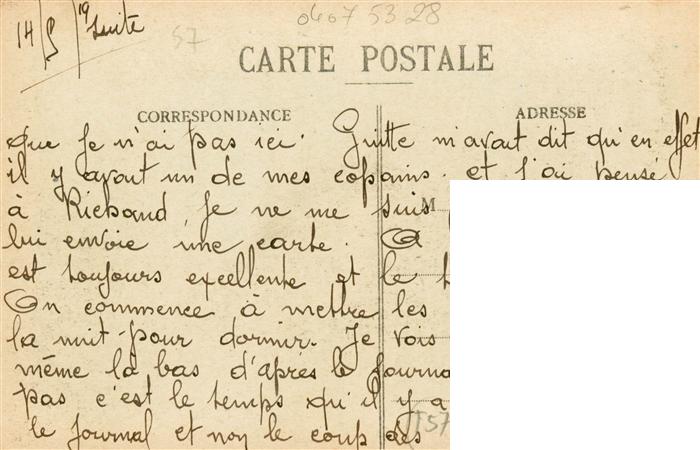 14/8/19 Suite
0407 53 28
57
CARTE POSTALE
CORRESPONDANCE
ADRESSE
que je n'ai pas ici. Guitte m'avait dit qu'en effet
il y avait un de mes copains. et j'ai pensé
à Richaud, je ne me suis
M
lui envoie une carte.
est toujours excellente et le
On commence à mettre les
la nuit pour dormir. Je vois
même là bas d'après le journa
pas c'est le temps qu'il y a
le journal et non le coup des